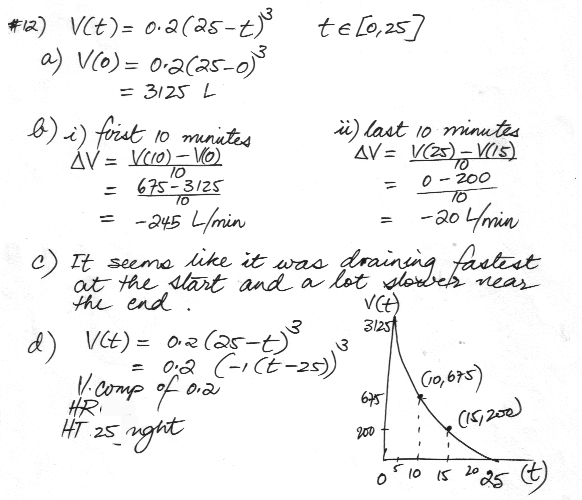 #12) V(t) = 0.2(25-t)³ t ∈ [0,25]
a) V(0) = 0.2(25-0)³
= 3125 L
b) i) first 10 minutes
ΔV = V(10) - V(0)
10
= 675 - 3125
10
= -245 L/min
ii) last 10 minutes
ΔV = V(25) - V(15)
10
= 0 - 200
10
= -20 L/min
c) It seems like it was draining fastest
at the start and a lot slower near
the end.
d) V(t) = 0.2(25-t)³
= 0.2 (-1(t-25))³
V. comp of 0.2
HR.
HT 25 right
V(t)
3125
675
200
(10,675)
(15,200)
0 5 10 15 20 25 (t)